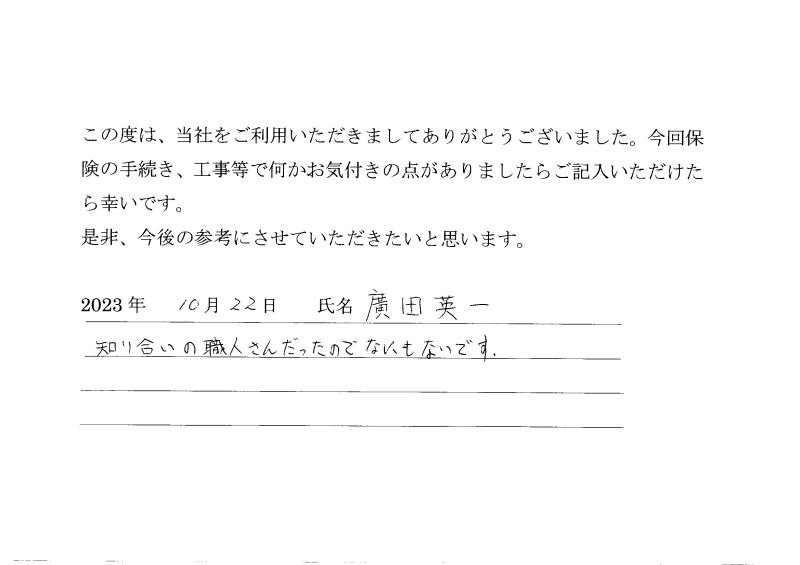 この度は、当社をご利用いただきましてありがとうございました。今回保
険の手続き、工事等で何かお気付きの点がありましたらご記入いただけた
ら幸いです。
是非、今後の参考にさせていただきたいと思います。
2023年 10月22日 氏名 廣田英一
知り合いの職人さんだったのでなにもないです.